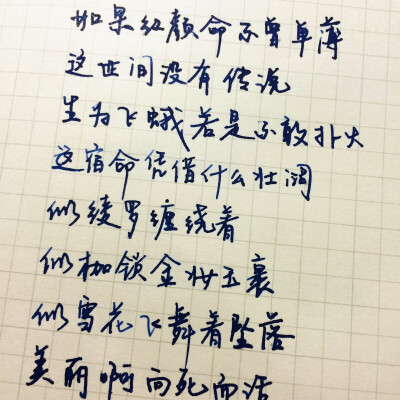 如果红颜命不曾单薄
这世间没有传说
生为飞蛾若是不敢扑火
这宿命凭借什么壮阔
似绫罗缠绕着
似枷锁金妆玉裹
似雪花飞舞着坠落
美丽啊向死而活